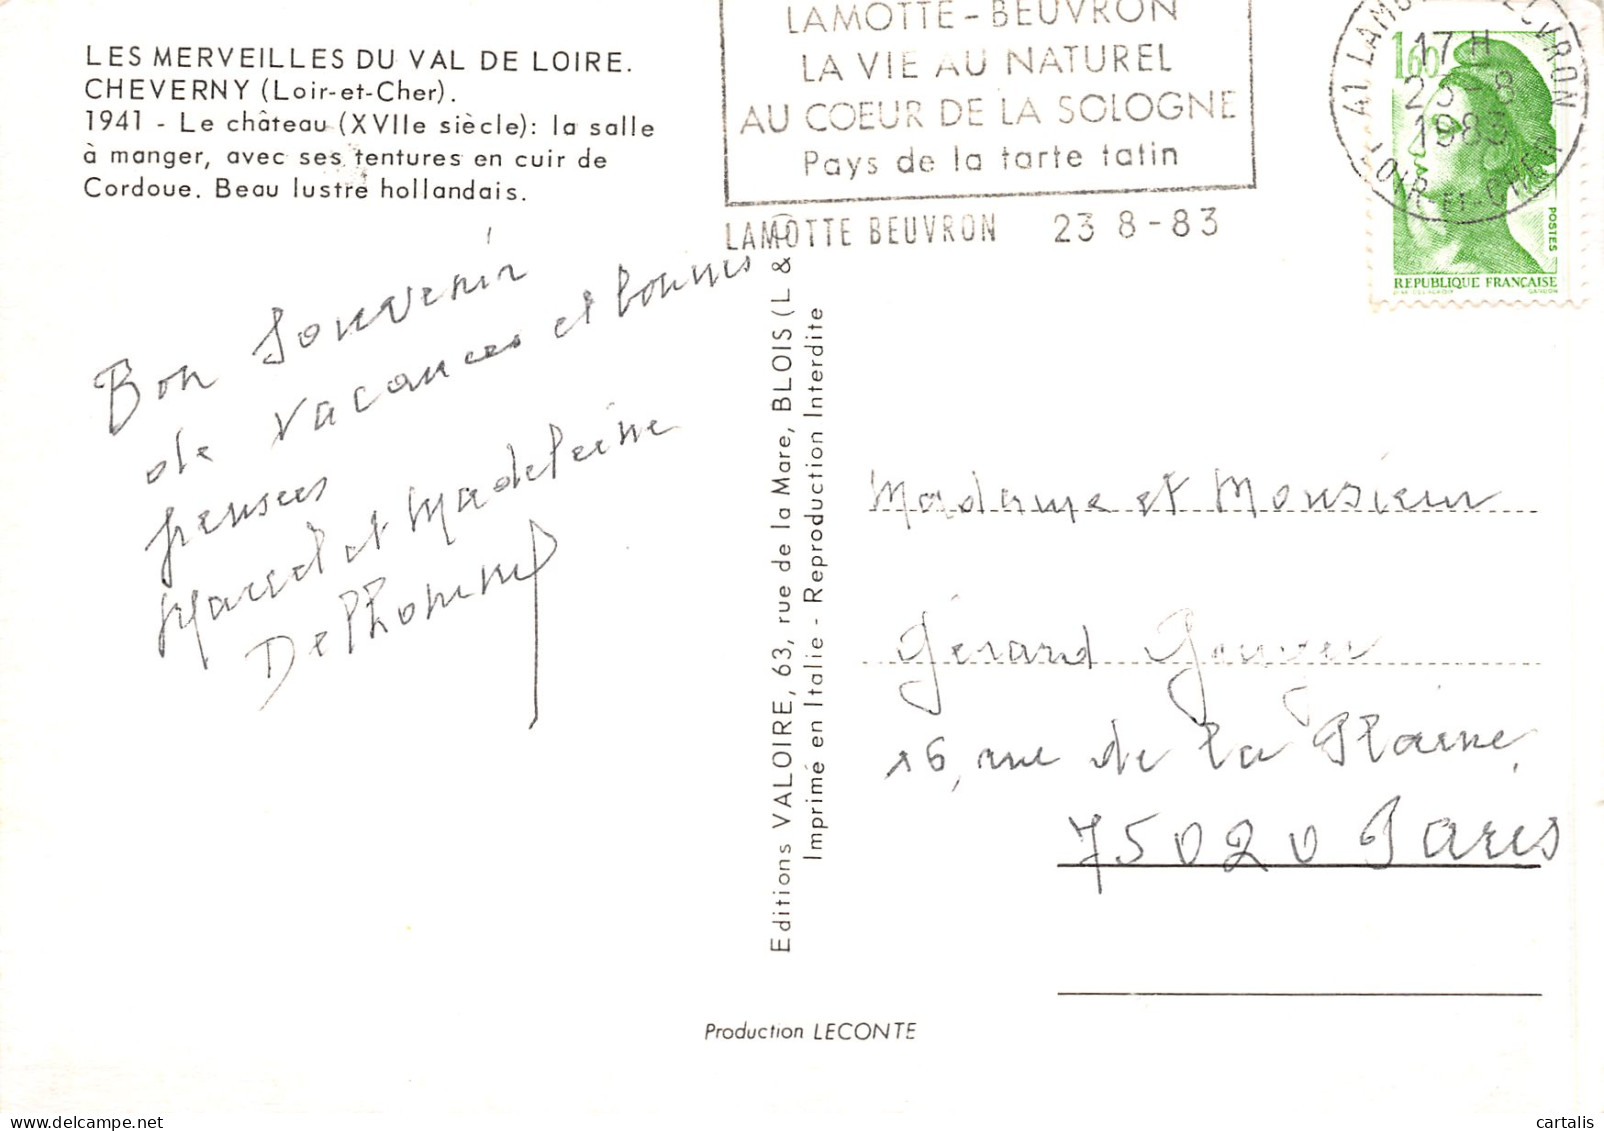 LES MERVEILLES DU VAL DE LOIRE.
CHEVERNY (Loir-et-Cher).
1941 - Le château (XVIIe siècle): la salle
à manger, avec ses tentures en cuir de
Cordoue. Beau lustre hollandais.
LAMOTTE-BEUVRON
LA VIE AU NATUREL
AU COEUR DE LA SOLOGNE
Pays de la tarte tatin
LAMOTTE BEUVRON 23 8-83
41 LAMOTTE BEUVRON
17 H
23-8
1983
LOIR-ET-CHER
1,60
POSTES
REPUBLIQUE FRANÇAISE
GANDON
Bon Souvenir
de Vacances et bonnes
pensées
Marcel et Madeleine
Delhomme
Editions VALOIRE, 63, rue de la Mare, BLOIS (L & C)
Imprimé en Italie - Reproduction Interdite
Madame et Monsieur
Gérard
16, rue de la Plaine,
75020 Paris
Production LECONTE
cartalis
delcampe.net